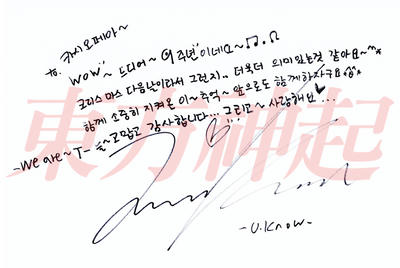 to. 카시오페아~
wow~ 드디어~ 9주년이네요~♫.♫
크리스마스 다음날이라서 그런지.. 더욱더 의미있는것 같아요~^^*
함께 소중히 지켜온 이~추억~ 앞으로도 함께하자구요^^*
늘~고맙고 감사합니다... 그리고~ 사랑해요♡...
-We are~T-
東方神起
-U.Know-